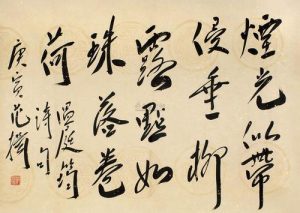 煙光似帶
侵垂柳
露點如
珠落卷
荷
溫庭筠
詩句
庚寅范揚